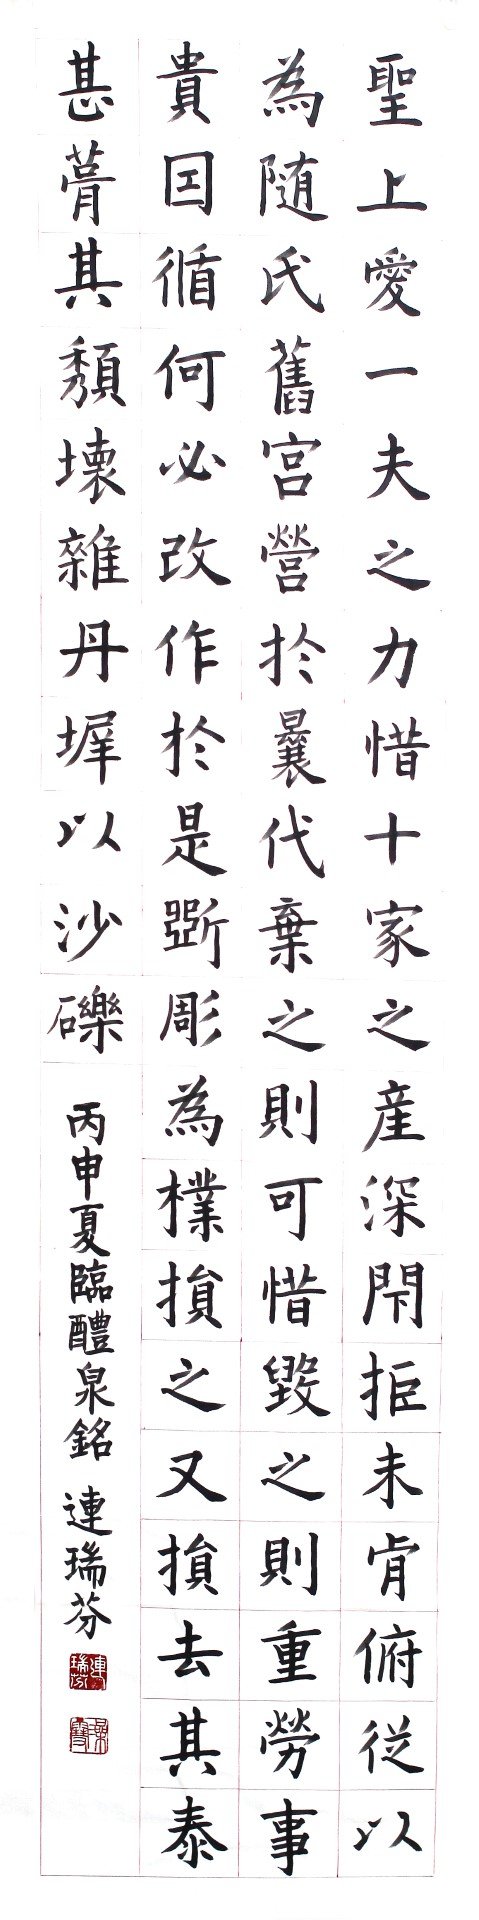 聖上愛一夫之力惜十家之産深閇拒未肯俯従以
為随氏舊宮營於曩代棄之則可惜毀之則重勞事
貴囙循何必改作於是斵彫為樸損之又損去其泰
甚葺其頹壞雜丹墀以沙礫
丙申夏臨醴泉銘 連瑞芬
連瑞芬